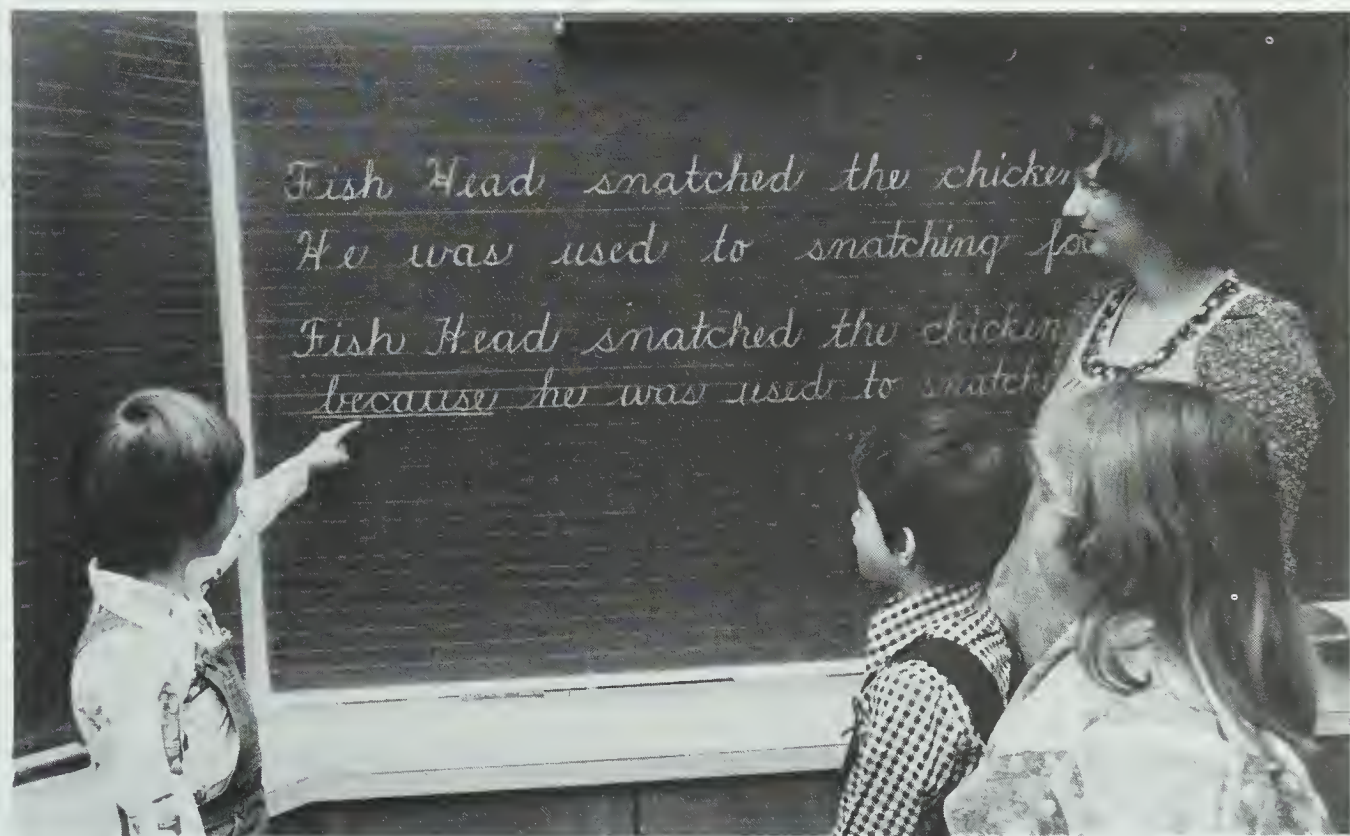 Fish Head snatched the chicken
He was used to snatching
Fish Head snatched the chicken
because he was used to